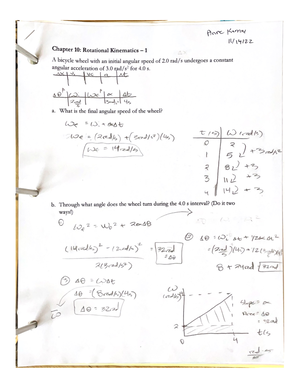 11/14/22
Chapter 10: Rotational Kinematics – 1
A bicycle wheel with an initial angular speed of 2.0 rad/s undergoes a constant
angular acceleration of 3.0 rad/s² for 4.0 s.
a. What is the final angular speed of the wheel?
ωf = ωi + αΔt
ωf = (2 rad/s) + (3 rad/s²)(4s)
ωf = 14 rad/s
t (s) ω (rad/s)
0 2
1 5 +3 rad/s
2 8 +3
3 11 +3
4 14 +3
b. Through what angle does the wheel turn during the 4.0 s interval? (Do it two
ways!)
① ωf² = ωi² + 2αΔθ
(14 rad/s)² - (2 rad/s)² = 32 rad
2(3 rad/s²) = Δθ
② Δθ = ωi Δt + ½αΔt²
8 + 24 rad = 32 rad
③ Δθ = ωΔt
Δθ = (8 rad/s)(4s)
Δθ = 32 rad
ω
(rad/s)
Slope = α
Area = Δθ
= 32 rad
2
t (s)
0 4